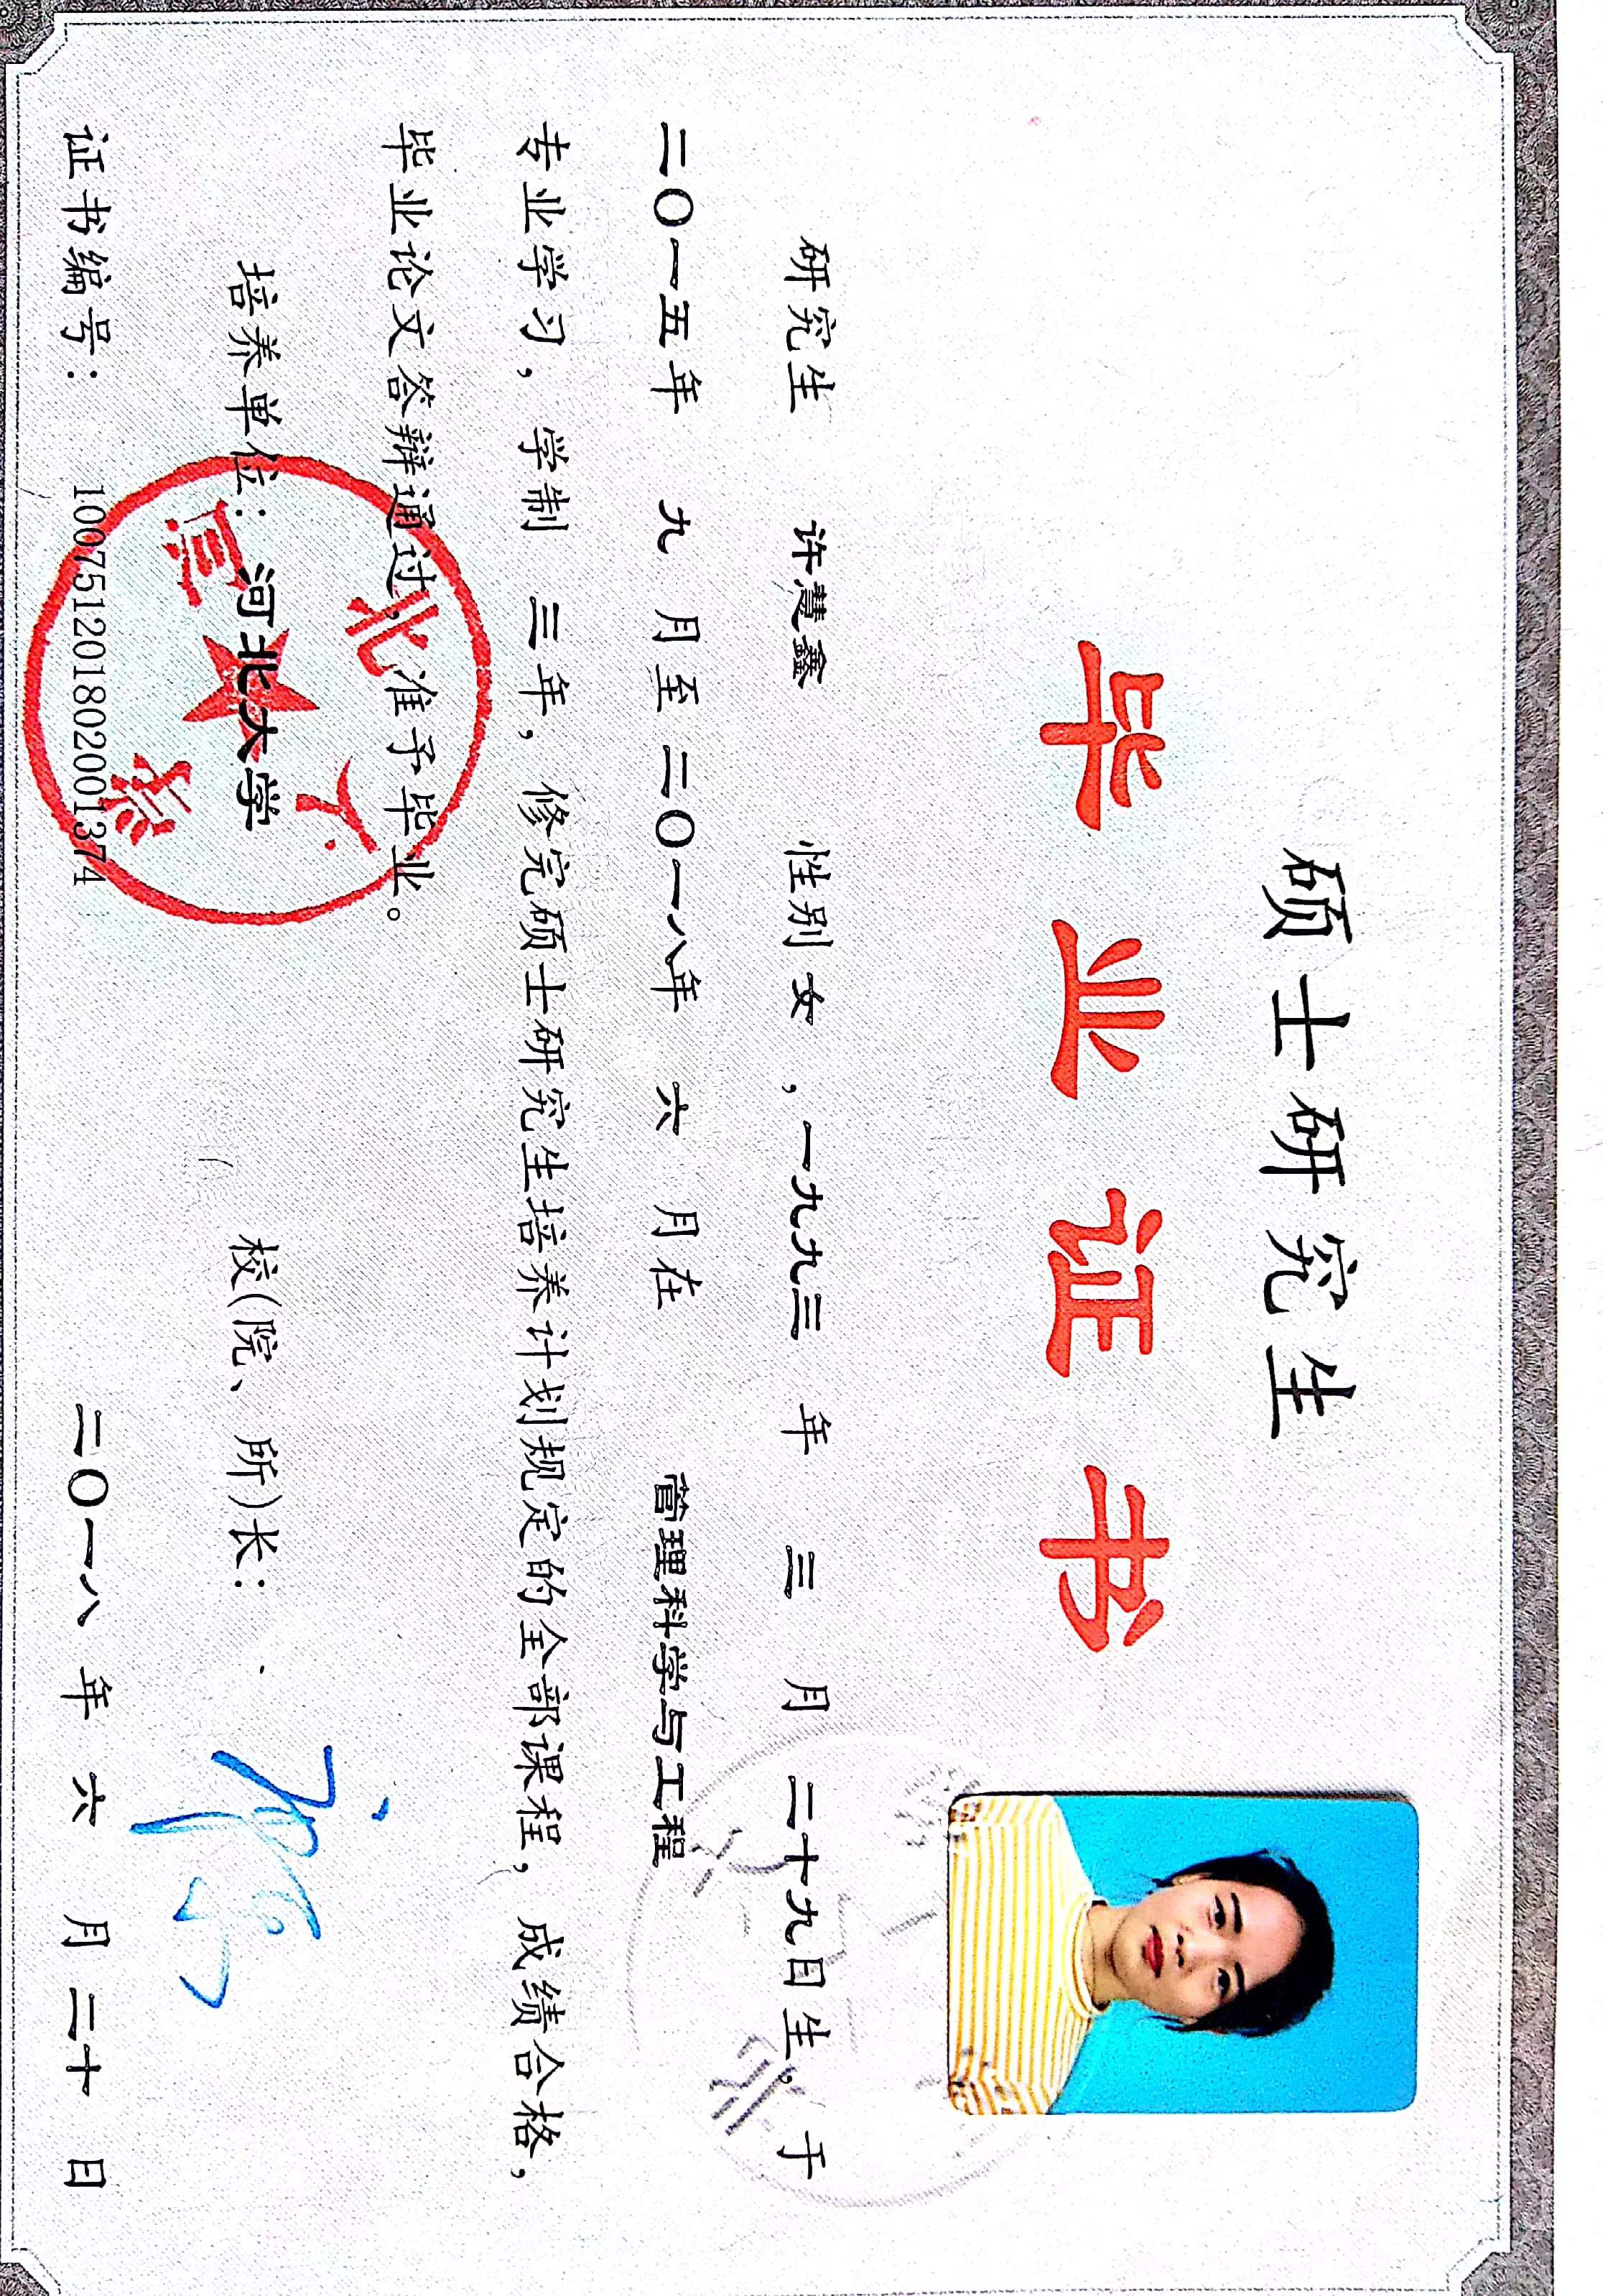 硕士研究生
毕业证书
研究生 许慧鑫 性别 女，一九九三 年 三 月 二十九日生，于
二〇一五年 九 月至二〇一八年 六 月在 管理科学与工程
专业学习，学制 三年，修完硕士研究生培养计划规定的全部课程，成绩合格，
毕业论文答辩通过，准予毕业。
培养单位：河北大学 校(院、所)长：
证书编号： 100751201802001374 二〇一八 年 六 月 二十 日
河北大学